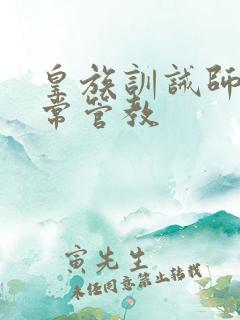 皇族訓誡師日
常管教
寅先生
未经同意禁止转载